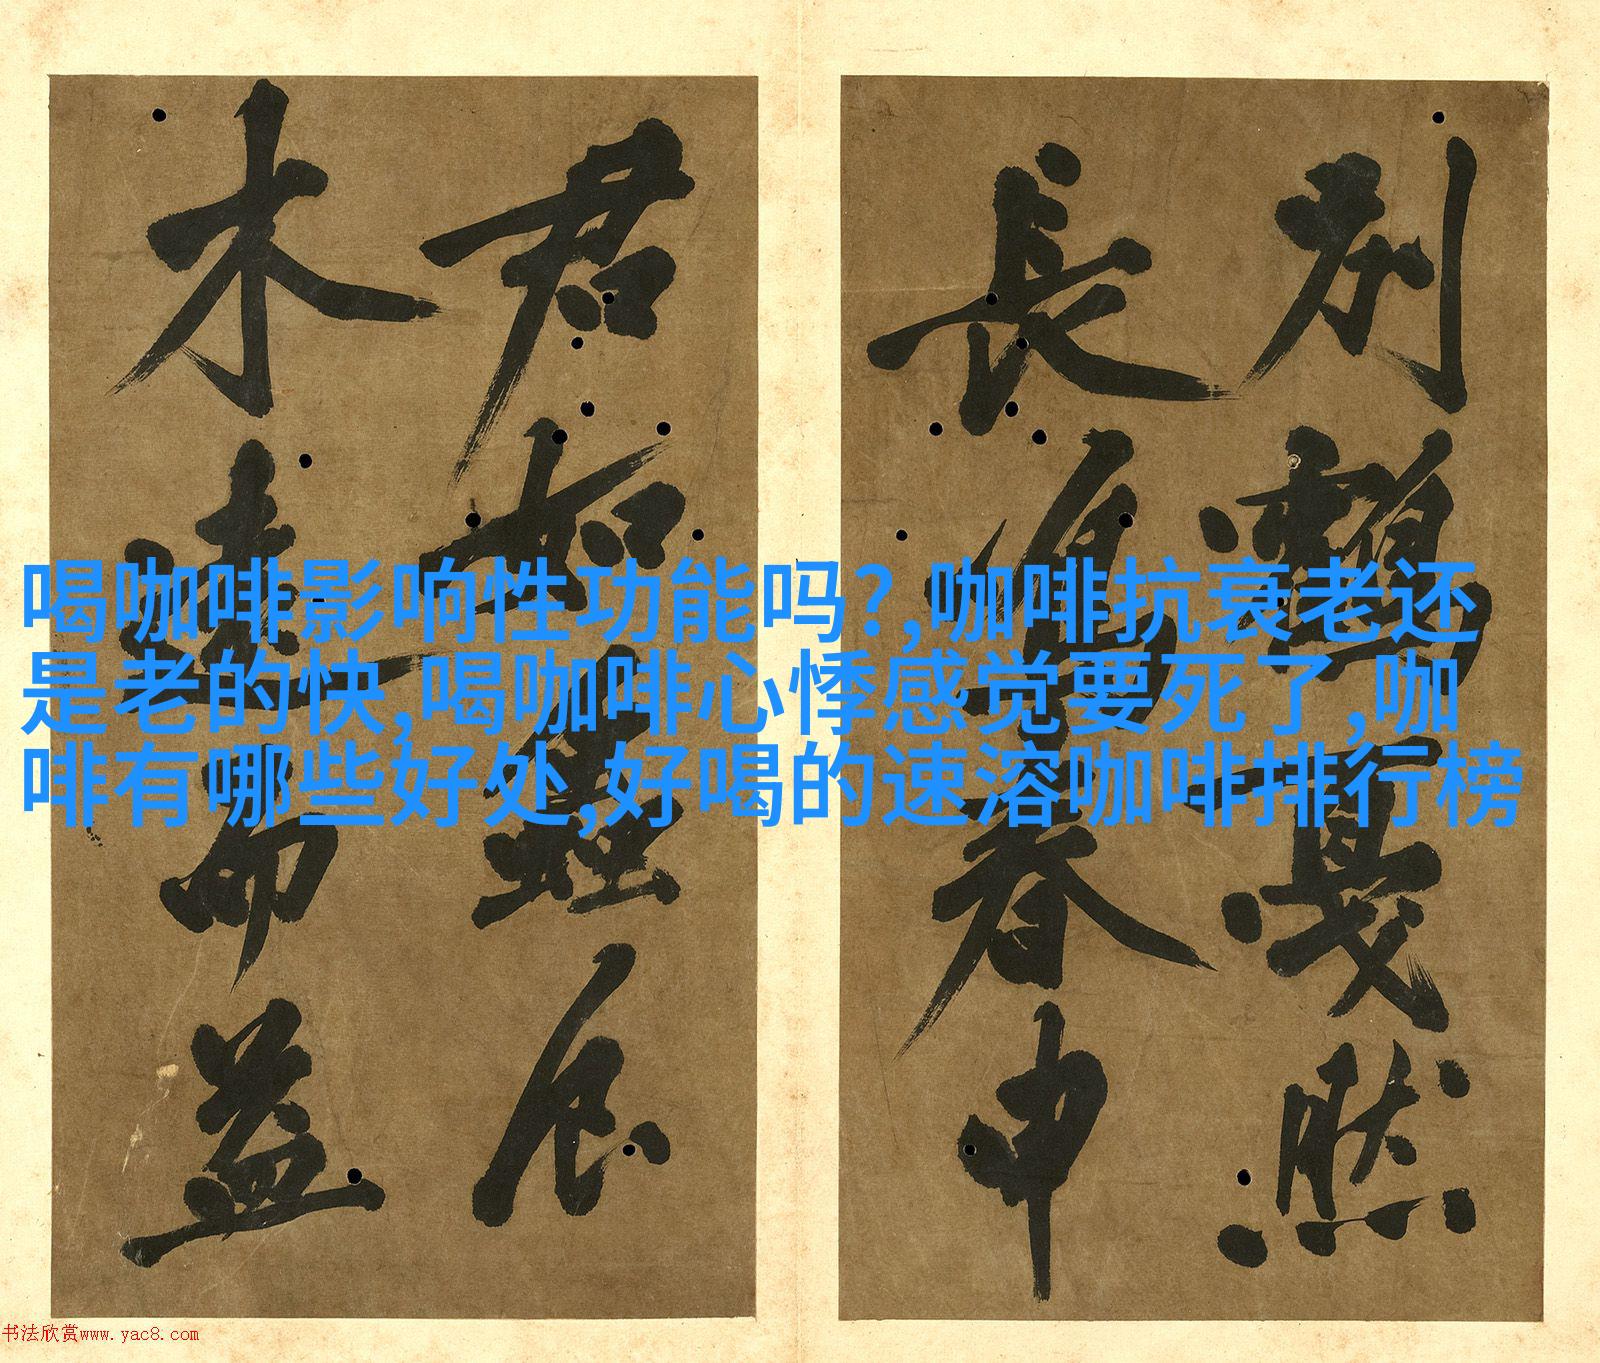 喝咖啡影响性功能吗?,咖啡抗衰老还
是老的快,喝咖啡心悸感觉要死了,咖
啡有哪些好处,好喝的速溶咖啡排行榜
別鶴戛然
長春申
君如
木遠而益
书法欣赏www.yac8.com